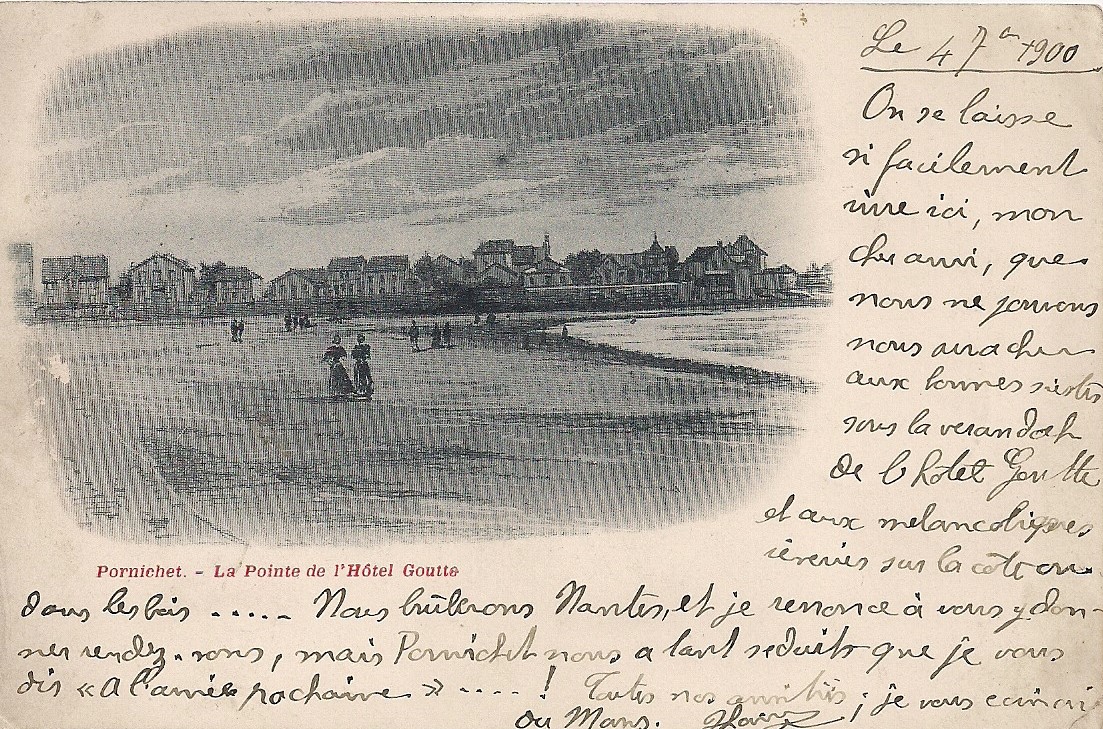 Le 4 7re 1900
On se laisse
si facilement
vivre ici, mon
cher ami, que
nous ne pouvons
nous arracher
aux bonnes siestes
sous la verandah
de l'hotel Goutte
et aux mélancoliques
rêveries sur la côte ou
Pornichet. - La Pointe de l'Hôtel Goutte
dans les bois ..... Nous brûlerons Nantes, et je renonce à vous y don-
ner rendez-vous, mais Pornichet nous a tant séduits que je vous
dis « A l'année prochaine » ....! Toutes nos amitiés ; je vous écrirai
du Mans.